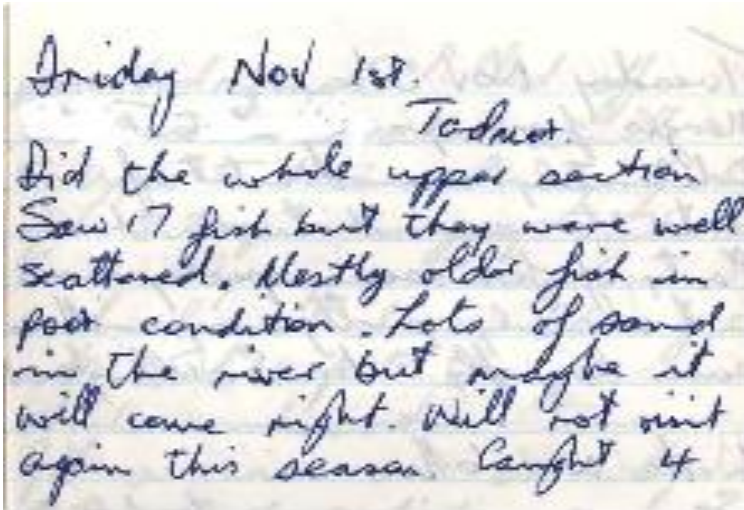 Friday Nov 1st.
Tadmor.
Did the whole upper section
Saw 17 fish but they were well
scattered. Mostly older fish in
poor condition. Lots of sand
in the river but maybe it
will come right. Will not visit
again this season. Caught 4